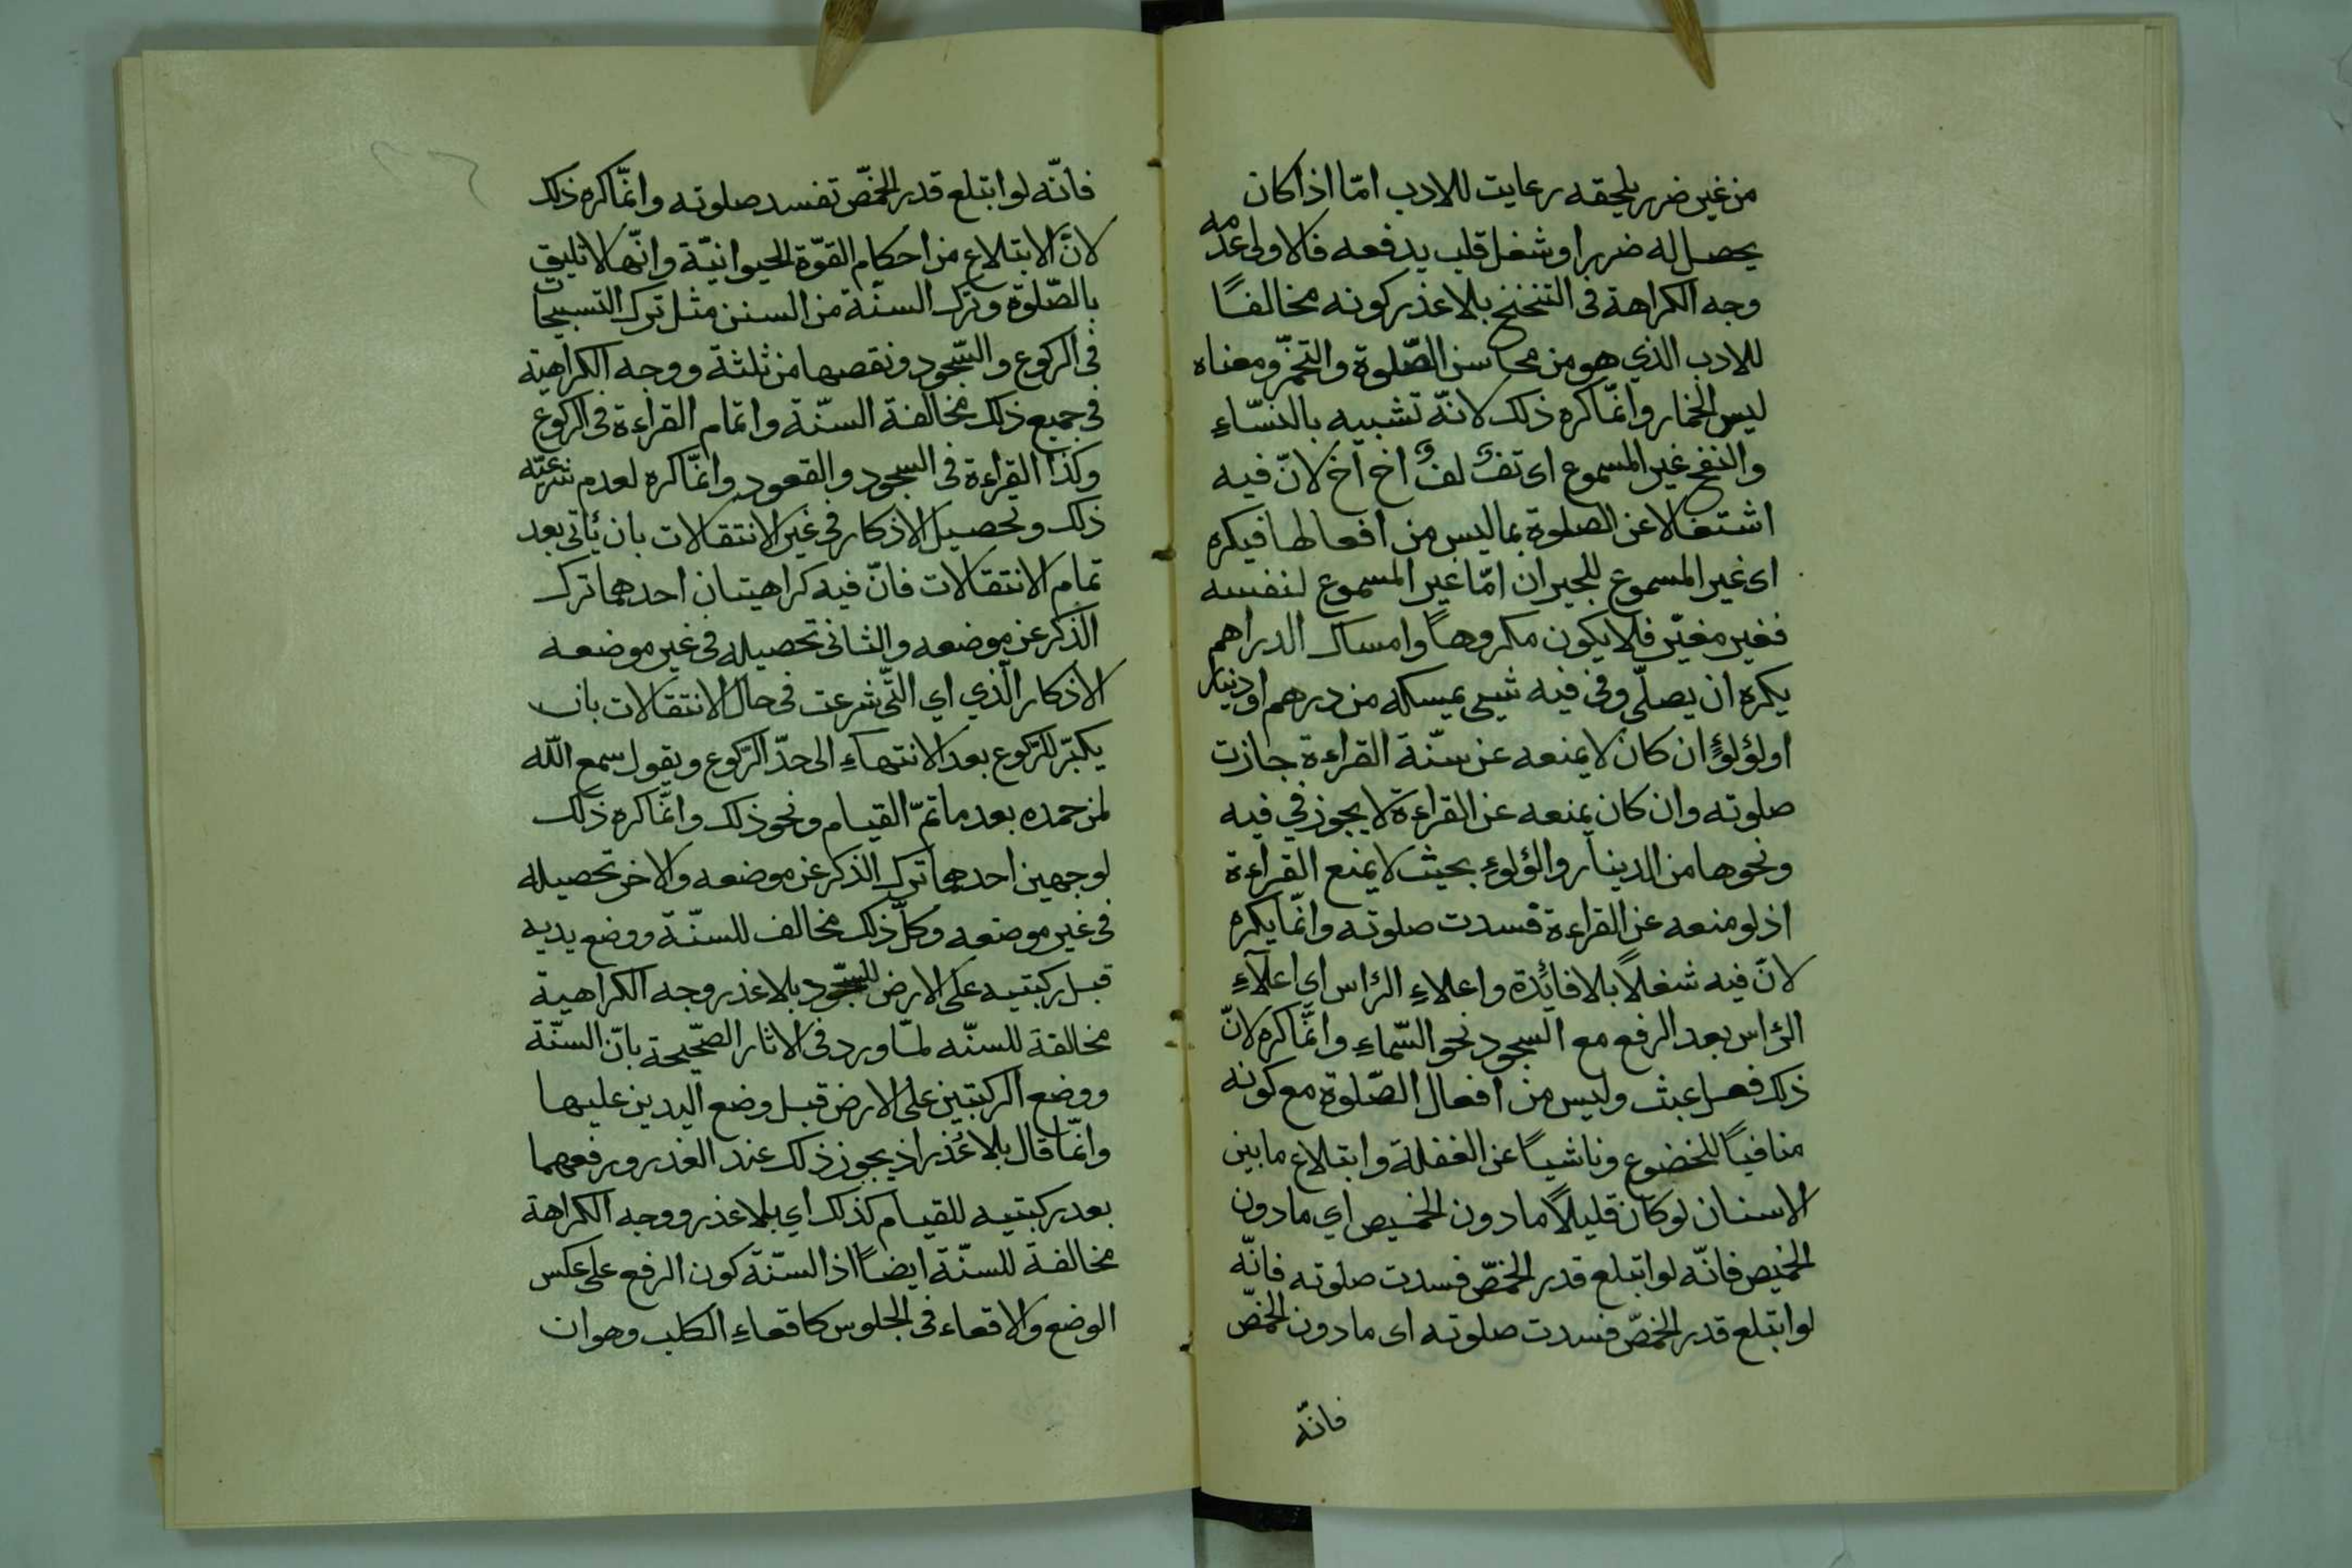 من غير ضرر يلحقه رعايت للادب امّا اذا كان
يحصل له ضررا وشغل قلب يدفعه فالاولى عدمه
وجه الكراهة فى التنحنح بلا عذر كونه مخالفًا
للادب الذي هو من محاسن الصّلوة والتخمّر ومعناه
ليس الخمار وانّما كره ذلك لانّه تشبيه بالنسّاءِ
والنفخ غير المسموع اى تفّ لفّ اخ اخ لانّ فيه
اشتغالا عن الصلوة بما ليس من افعالها فيكره
اى غير المسموع للجيران امّا غير المسموع لنفسه
فغير مغيّر فلا يكون مكروهاً وامساك الدراهم
يكره ان يصلّي وفى فيه شيئ يمسكه من درهم او دينار
او لؤلؤٍ ان كان لا يمنعه عن سنّة القراءة جازت
صلوته وان كان يمنعه عن القراءة لا يجوز في فيه
ونحوها من الدينار والؤلوءِ بحيث لا يمنع القراءة
اذ لو منعه عن القراءة فسدت صلوته وانّما يكره
لانّ فيه شغلاً بلا فائدة واعلاءِ الرّاس اي اعلآءِ
الرّاس بعد الرفع مع السجود نحو السّماءِ وانّما كره لانّ
ذلك فعل عبث وليس من افعال الصّلوة مع كونه
منافياً للخضوع وناشياً عن الغفلة وابتلاع ما بين
الاسنان لو كان قليلاً ما دون الخميص اي ما دون
الخميص فانّه لو ابتلع قدر الخمصّ فسدت صلوته فانّه
لو ابتلع قدر الخمصّ فسدت صلوته اى ما دون الخمصّ
فانّه
فانّه لو ابتلع قدر الخمصّ تفسد صلوته وانّما كره ذلك
لانّ الابتلاع من احكام القوّة الحيوانيّة وانّها لا تليق
بالصّلوة وترك السنّة من السنن مثل ترك التسبيحات
فى الركوع والسّجود ونقصها من ثلثة ووجه الكراهية
فى جميع ذلك مخالفة السنّة واتمام القراءة فى الركوع
وكذا القراءة فى السجود والقعود وانّما كره لعدم شرعيّة
ذلك وتحصيل الاذكار فى غير الانتقالات بان يأتى بعد
تمام الانتقالات فانّ فيه كراهيتان احدهما ترك
الذكر عن موضعه والثانى تحصيله فى غير موضعه
الاذكار الّذي اي الّتى شرعت فى حال الانتقالات بان
يكبّر للرّكوع بعد الانتهاءِ الى حدّ الرّكوع ويقول سمع اللّه
لمن حمده بعد ما تمّ القيام ونحو ذلك وانّما كره ذلك
لوجهين احدهما ترك الذكر عن موضعه والاخر تحصيله
فى غير موضعه وكلّ ذلك مخالف للسنّة ووضع يديه
قبل ركبتيه على الارض للسّجود بلا عذر وجه الكراهية
مخالفة للسنّه لمّا ورد فى الاثار الصّحيحة بانّ السنّة
ووضع الركبتين على الارض قبل وضع اليدين عليها
وانّما قال بلا عذر اذ يجوز ذلك عند العذر ورفعهما
بعد ركبتيه للقيام كذلك اي بلا عذر ووجه الكراهة
مخالفة للسنّة ايضاً اذ السنّة كون الرفع على عكس
الوضع والاقعاء فى الجلوس كاقعاءِ الكلب وهو ان